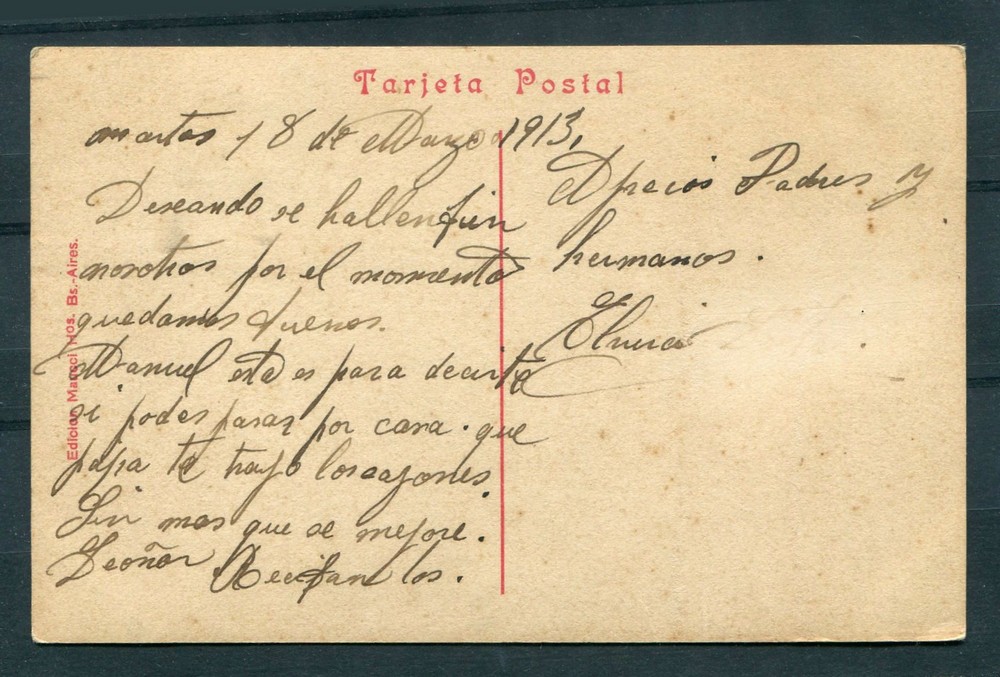 Tarjeta Postal
martes 18 de Marzo 1913,
Deseando se hallen
nosotros por el momento
quedamos buenos.
Manuel esta es para decirte
si podes pasar por casa. que
papa te trajo los cajones.
Sin mas que se mejore.
Leoñor Reciban los.
Apreciós Padres y
hermanos.
Elvira
Edicion Mar H Bs.-Aires.